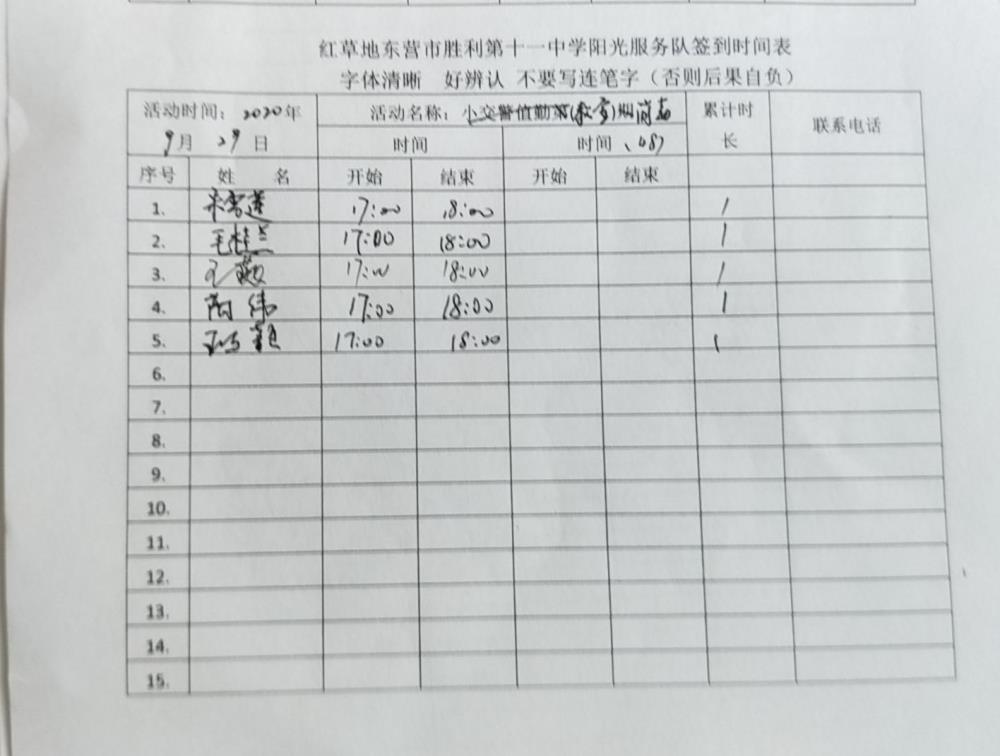 红草地东营市胜利第十一中学阳光服务队签到时间表
字体清晰 好辨认 不要写连笔字（否则后果自负）
活动时间：2020年 活动名称：小交警值勤 累计时长 联系电话
9月 29日 时间 时间
序号 姓 名 开始 结束 开始 结束
1. 17:00 18:00 1
2. 毛桂兰 17:00 18:00 1
3. 17:00 18:00 1
4. 17:00 18:00 1
5. 17:00 18:00 1
6.
7.
8.
9.
10.
11.
12.
13.
14.
15.